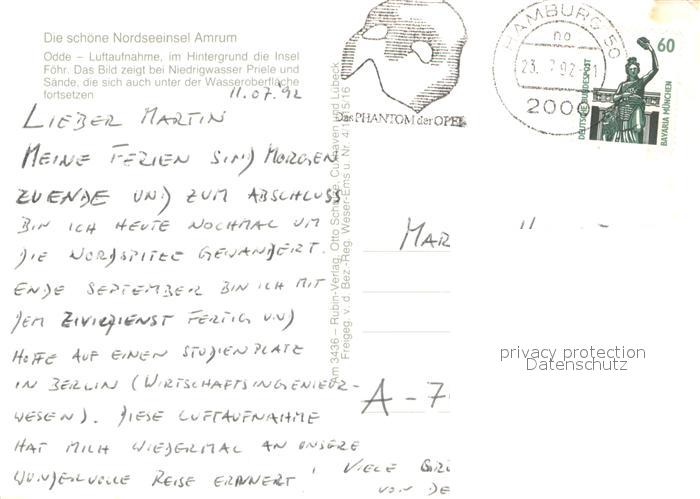 Die schöne Nordseeinsel Amrum
Odde – Luftaufnahme, im Hintergrund die Insel
Föhr. Das Bild zeigt bei Niedrigwasser Priele und
Sände, die sich auch unter der Wasseroberfläche
fortsetzen
11.07.92
LIEBER MARTIN
MEINE FERIEN SIND MORGEN
ZUENDE UND ZUM ABSCHLUSS
BIN ICH HEUTE NOCHMAL UM
DIE NORDSPITZE GEWANDERT.
ENDE SEPTEMBER BIN ICH MIT
DEM ZIVILDIENST FERTIG UND
HOFFE AUF EINEN STUDIENPLATZ
IN BERLIN (WIRTSCHAFTSINGENIEUR-
WESEN). DIESE LUFTAUFNAHME
HAT MICH WIEDERMAL AN UNSERE
WUNDERVOLLE REISE ERINNERT!
VIELE
VON
3436 – Rubin-Verlag, Otto Cuxhaven und Lübeck
Freigeg. v. d. Bez.-Reg. Weser-Ems u. Nr.
Das PHANTOM der OPER
HAMBURG 50
no
23. 92
2000
60
DEUTSCHE BUNDESPOST
BAVARIA MÜNCHEN
MAR
A-7
privacy protection
Datenschutz